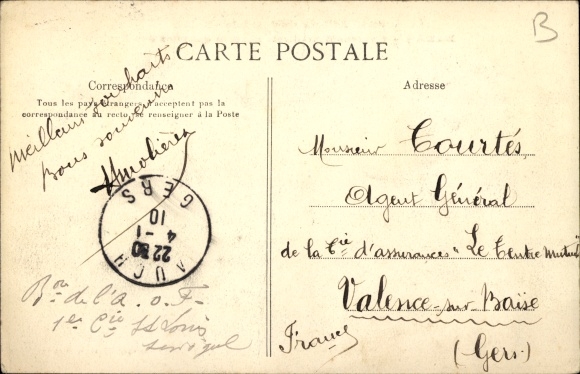 B
CARTE POSTALE
Correspondance
Tous les pays étrangers n'acceptent pas la
correspondance au recto, se renseigner à la Poste
Meilleurs souhaits
Bons souvenirs
AUCH
22 30
4 - 1
10
GERS
Bon de l'A. O. F.
1er Cie St Louis
Sénégal
Adresse
Monsieur Courtés
Agent Général
de la Cie d'assurances "Le Centre Mutuel"
Valence-sur-Baïse
France
(Gers)